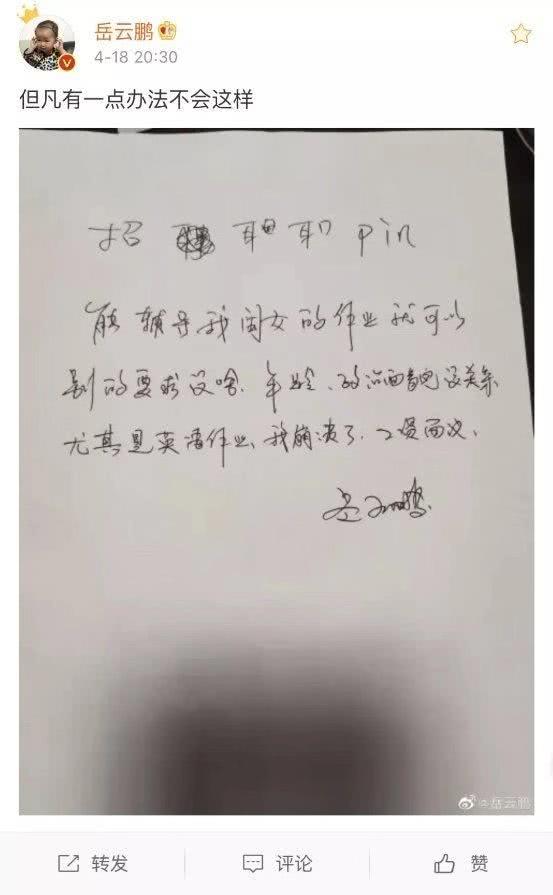 岳云鹏
4-18 20:30
但凡有一点办法不会这样
招 聃 职 pin
能辅导我闺女的作业就可以
别的要求没啥.年龄、政治面貌没关系
尤其是英语作业、我崩溃了.工资面议、
岳云鹏
@岳云鹏
转发
评论
赞